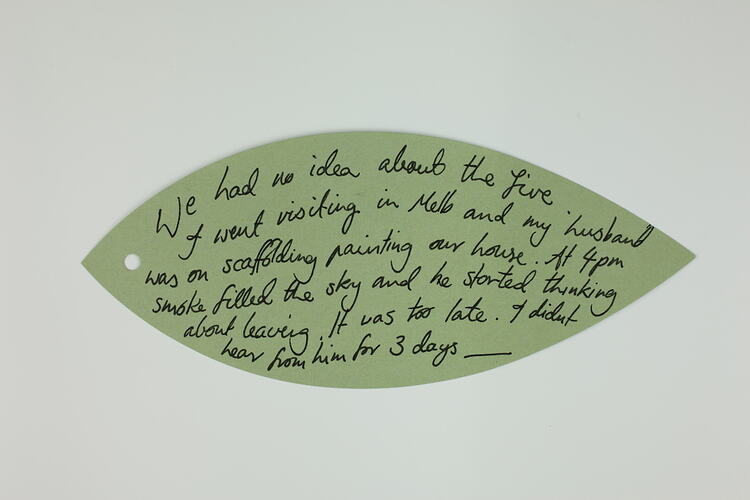 We had no idea about the fire
I went visiting in Melb and my husband
was on scaffolding painting our house. At 4pm
smoke filled the sky and he started thinking
about leaving. It was too late. I didnt
hear from him for 3 days —